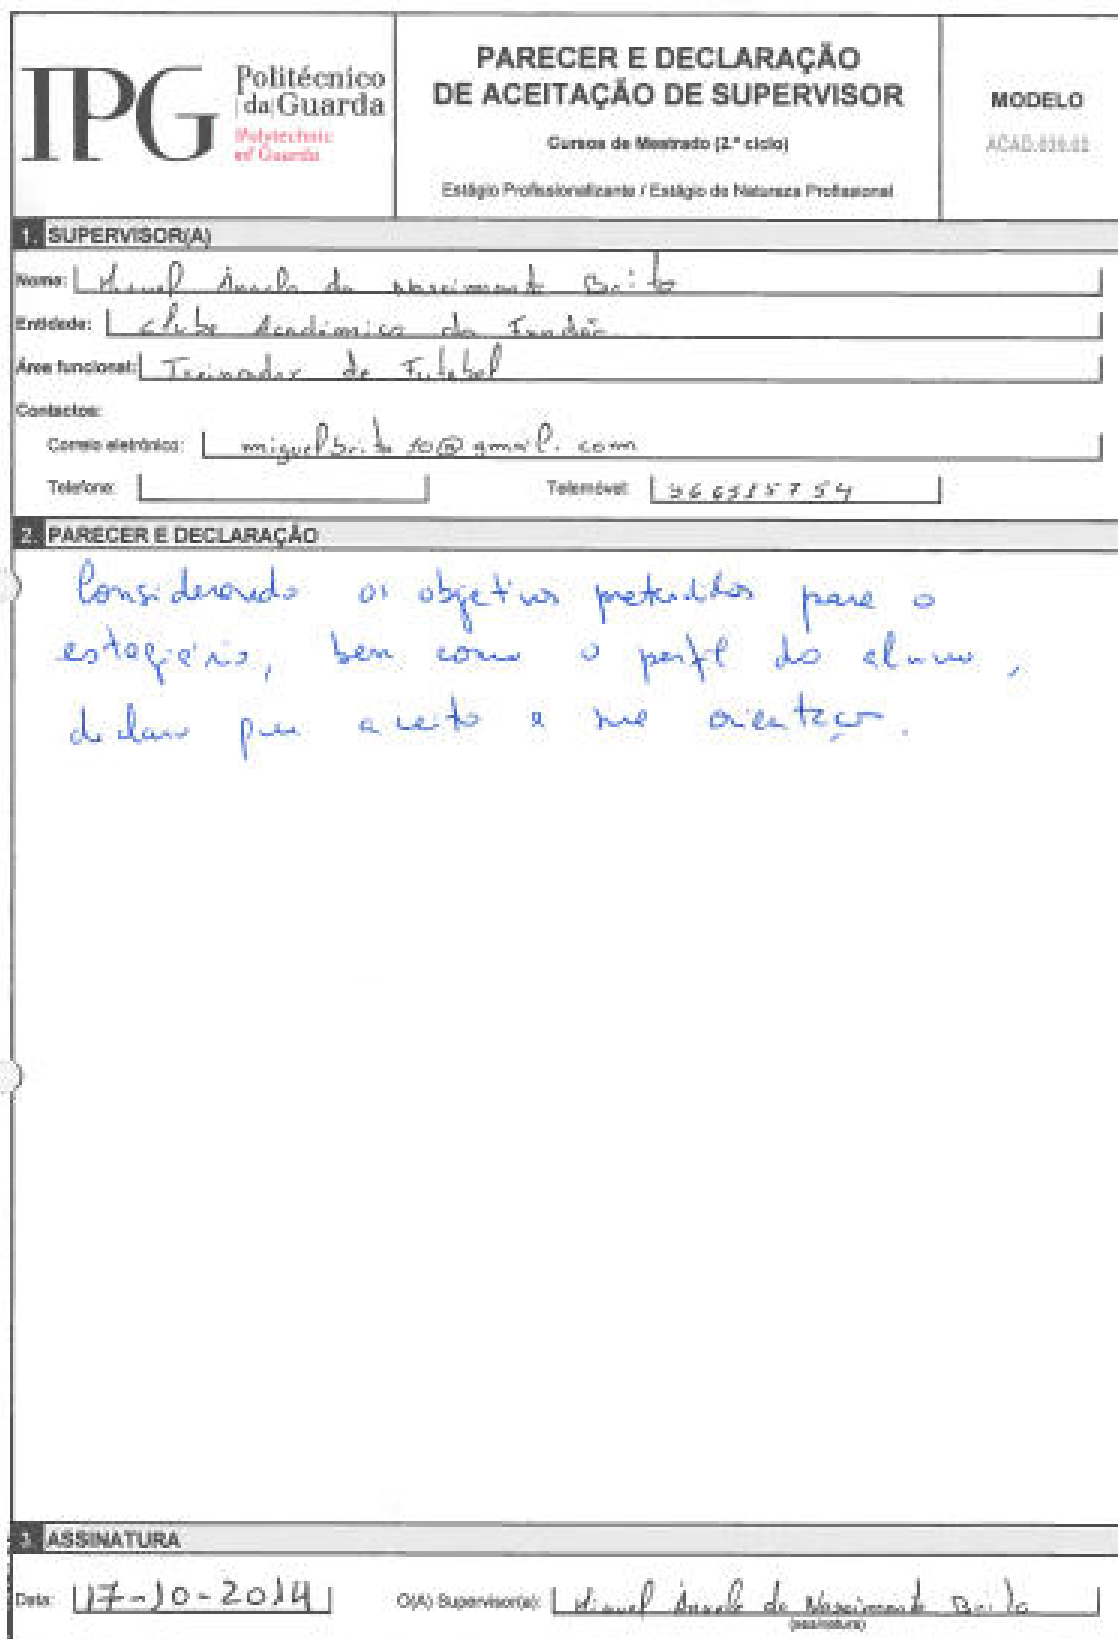 IPG Politécnico
da Guarda
Polytechnic
of Guarda
PARECER E DECLARAÇÃO
DE ACEITAÇÃO DE SUPERVISOR
Cursos de Mestrado (2.º ciclo)
Estágio Profissionalizante / Estágio de Natureza Profissional
MODELO
1. SUPERVISOR(A)
Nome: Miguel Ângelo do Nascimento Brito
Entidade: Clube Académico do Fundão
Área funcional: Treinador de Futebol
Contactos:
Correio eletrónico: miguelbrito10@gmail.com
Telefone: Telemóvel:
2. PARECER E DECLARAÇÃO
Considerando os objetivos pretendidos para o
estagiário, bem como o perfil do aluno,
declaro que aceito a sua orientação.
3. ASSINATURA
Data: 17-10-2014 O(A) Supervisor(a): Miguel Ângelo do Nascimento Brito
(assinatura)